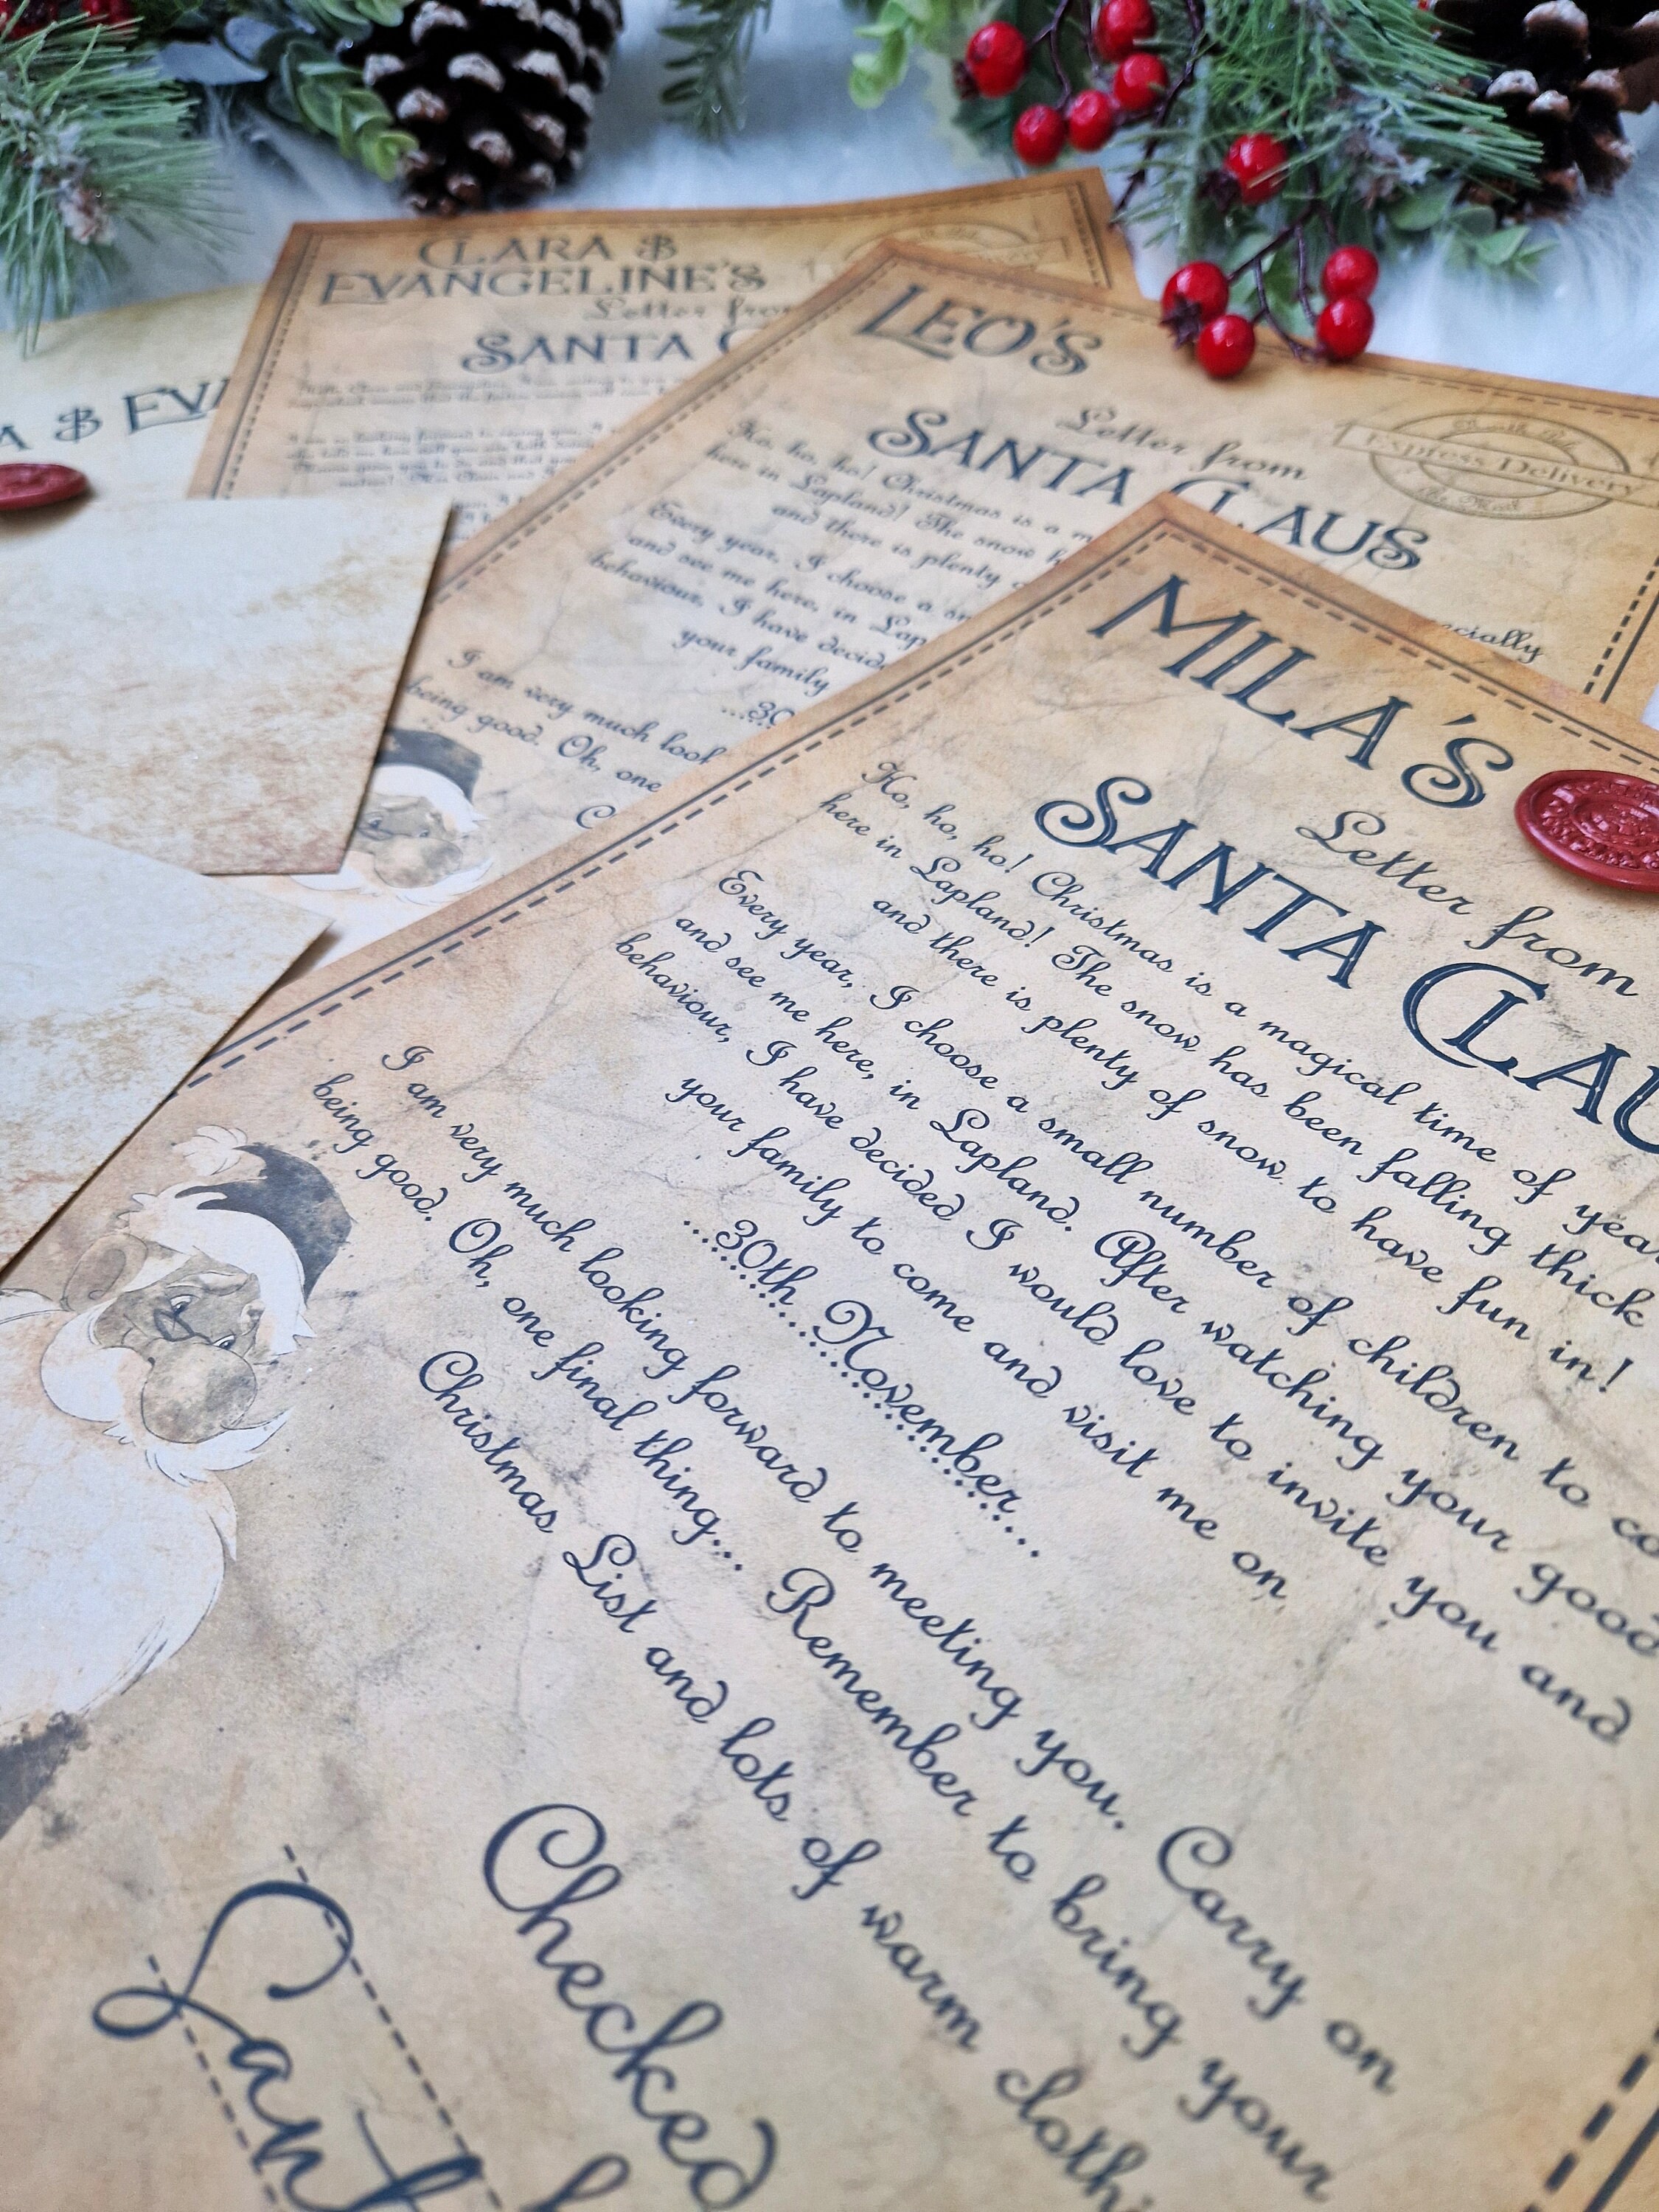 CLARA &
EVANGELINE'S
Letter from
SANTA C
A & EVA
LEO'S
Letter from
SANTA CLAUS
Express Delivery
Ho, ho, ho! Christmas is a m
here in Lapland! The snow h
and there is plenty o
Every year, I choose a sm
and see me here, in Lap
behaviour, I have decid
your family
...30
I am very much look
being good. Oh, one
C
ecially
MILA'S
Letter from
SANTA CLAU
Ho, ho, ho! Christmas is a magical time of year
here in Lapland! The snow has been falling thick
and there is plenty of snow to have fun in!
Every year, I choose a small number of children to co
and see me here, in Lapland. After watching your good
behaviour, I have decided I would love to invite you and
your family to come and visit me on
...30th November...
I am very much looking forward to meeting you. Carry on
being good. Oh, one final thing... Remember to bring your
Christmas List and lots of warm clothi
Checked
Sant